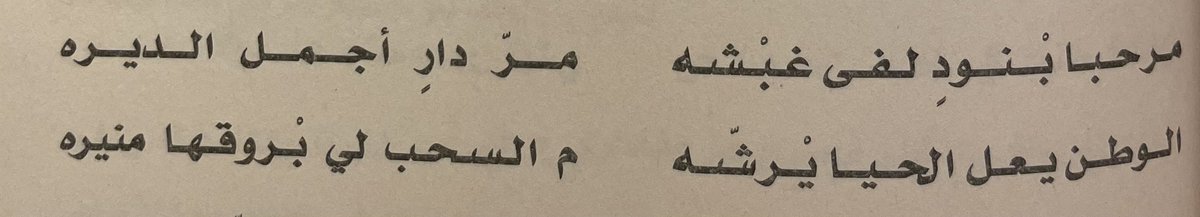 مرحبا بْنودِ لفى غبْشه مرّ دارِ أجمل الديره
الوطن يعل الحيا يْرشّه م السحب لي بْروقها منيره